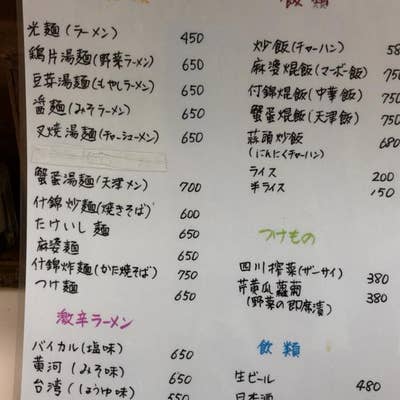 飯類
光麺(ラーメン) 450
鶏片湯麺(野菜ラーメン) 650
豆芽湯麺(もやしラーメン) 650
醤麺(みそラーメン) 650
叉焼湯麺(チャーシューメン) 650
蟹蛋湯麺(天津メン) 700
什錦炒麺(焼きそば) 600
たけいし麺 650
麻婆麺 650
什錦炸麺(かた焼そば) 750
つけ麺 650
激辛ラーメン
バイカル(塩味) 650
黄河(みそ味) 650
台湾(しょうゆ味 550
炒飯(チャーハン) 58
麻婆焜飯(マーボー飯) 750
付錦焜飯(中華飯) 750
蟹蛋焜飯(天津飯) 750
蒜頭炒飯 680
(にんにくチャーハン)
ライス 200
半ライス 150
つけもの
四川搾菜(ザーサイ) 380
芹黄瓜蘿蔔 380
(野菜の即席漬)
飲類
生ビール 480
日本酒